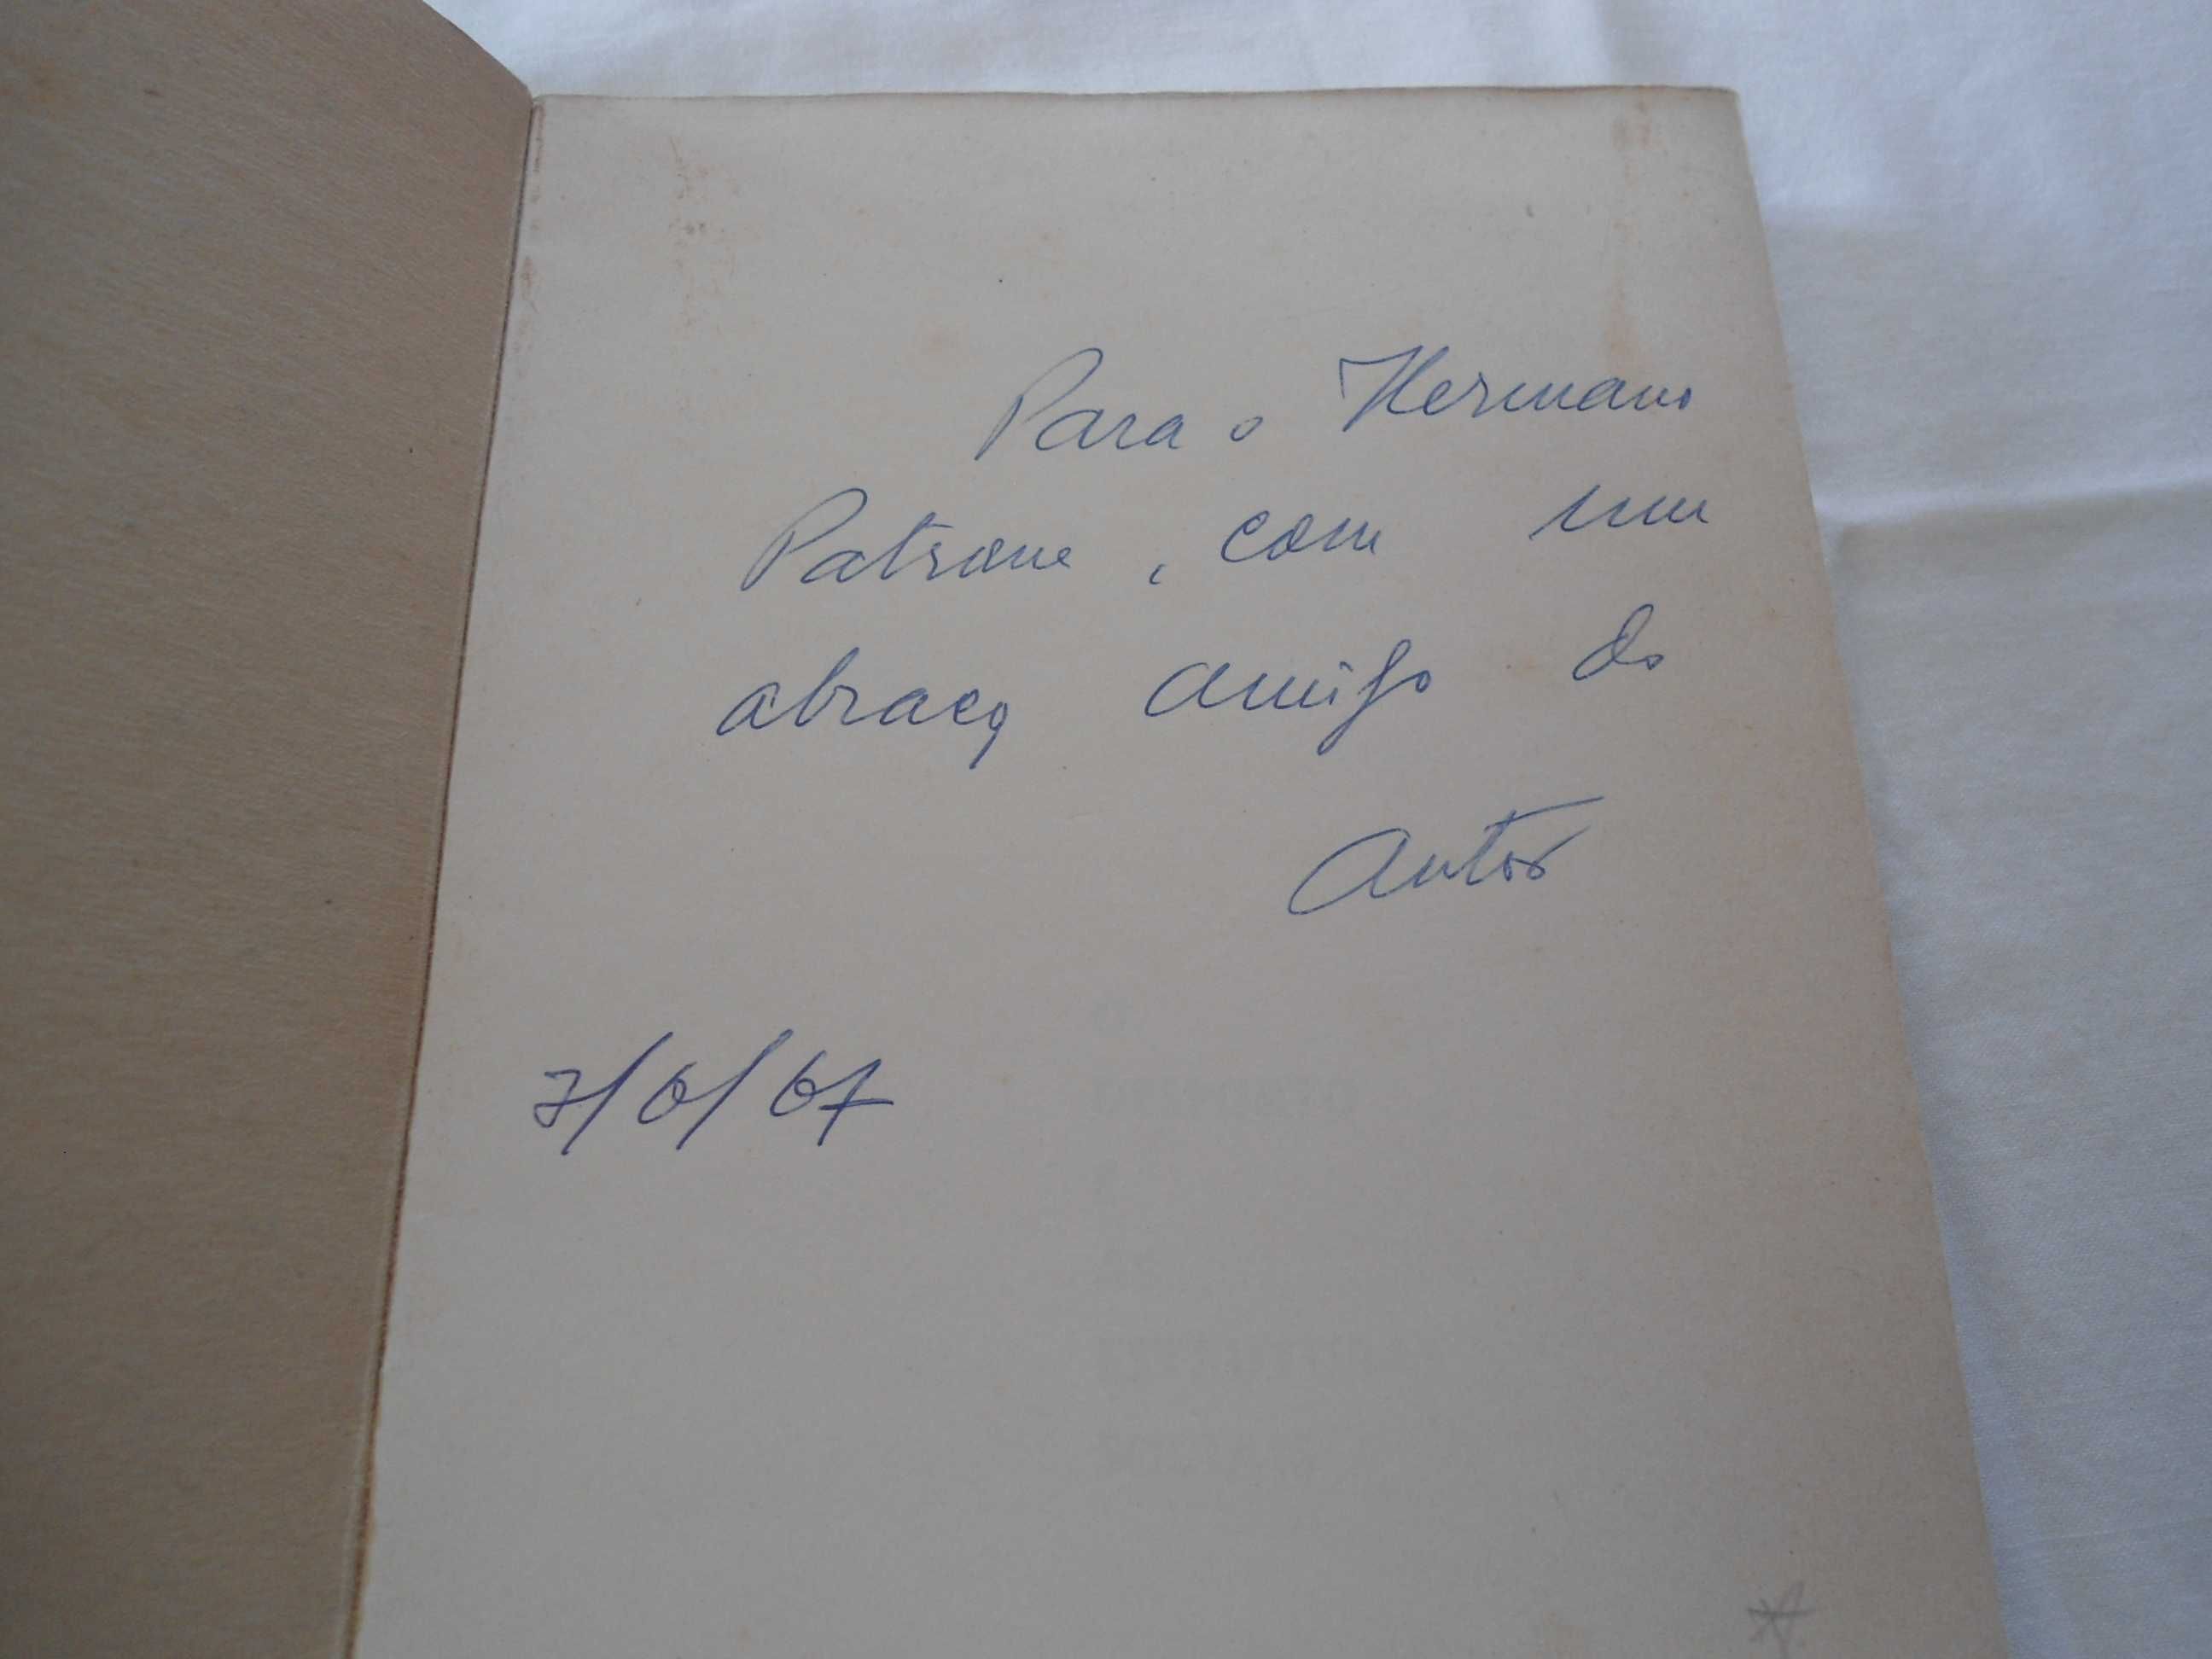 Para o Hermano
Patrone, com um
abraço amigo do
Autor
7/6/67